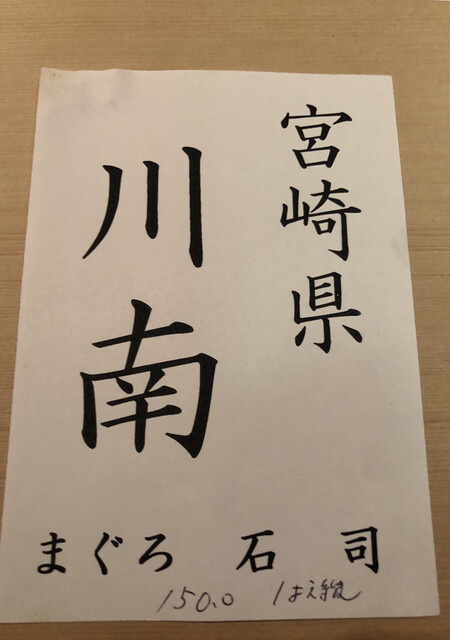 宮崎県
川南
まぐろ 石司
150.0 はえ縄